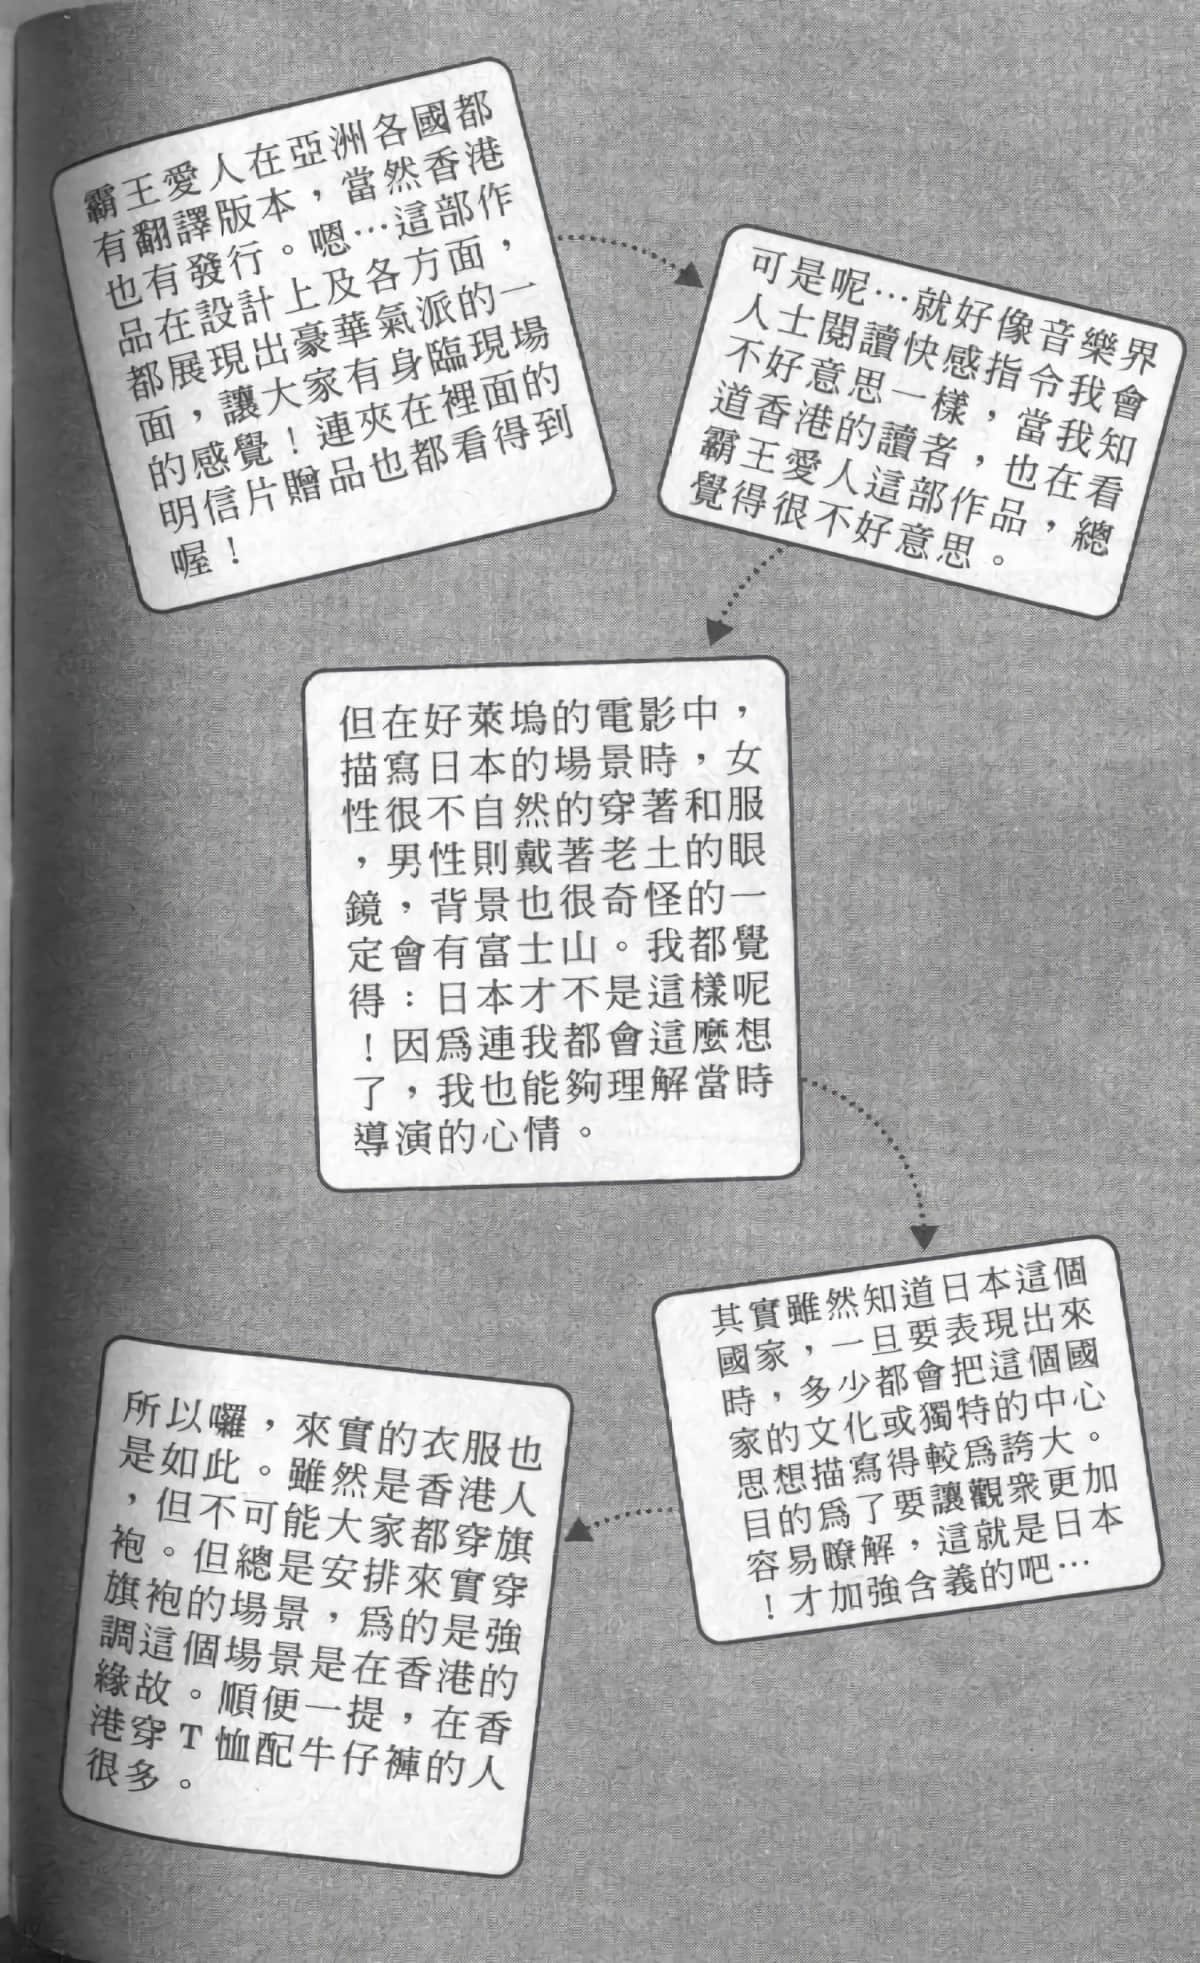 霸王愛人在亞洲各國都
有翻譯版本，當然香港
也有發行。嗯…這部作
品在設計上及各方面，
都展現出豪華氣派的一
面，讓大家有身臨現場
的感覺！連夾在裡面的
明信片贈品也都看得到
喔！
可是呢…就好像音樂界
人士閱讀快感指令我會
不好意思一樣，當我知
道香港的讀者，也在看
霸王愛人這部作品，總
覺得很不好意思。
但在好萊塢的電影中，
描寫日本的場景時，女
性很不自然的穿著和服
，男性則戴著老土的眼
鏡，背景也很奇怪的一
定會有富士山。我都覺
得：日本才不是這樣呢
！因爲連我都會這麼想
了，我也能夠理解當時
導演的心情。
其實雖然知道日本這個
國家，一旦要表現出來
時，多少都會把這個國
家的文化或獨特的中心
思想描寫得較爲誇大。
目的爲了要讓觀衆更加
容易瞭解，這就是日本
！才加強含義的吧…
所以囉，來實的衣服也
是如此。雖然是香港人
，但不可能大家都穿旗
袍。但總是安排來實穿
旗袍的場景，爲的是強
調這個場景是在香港的
緣故。順便一提，在香
港穿T恤配牛仔褲的人
很多。